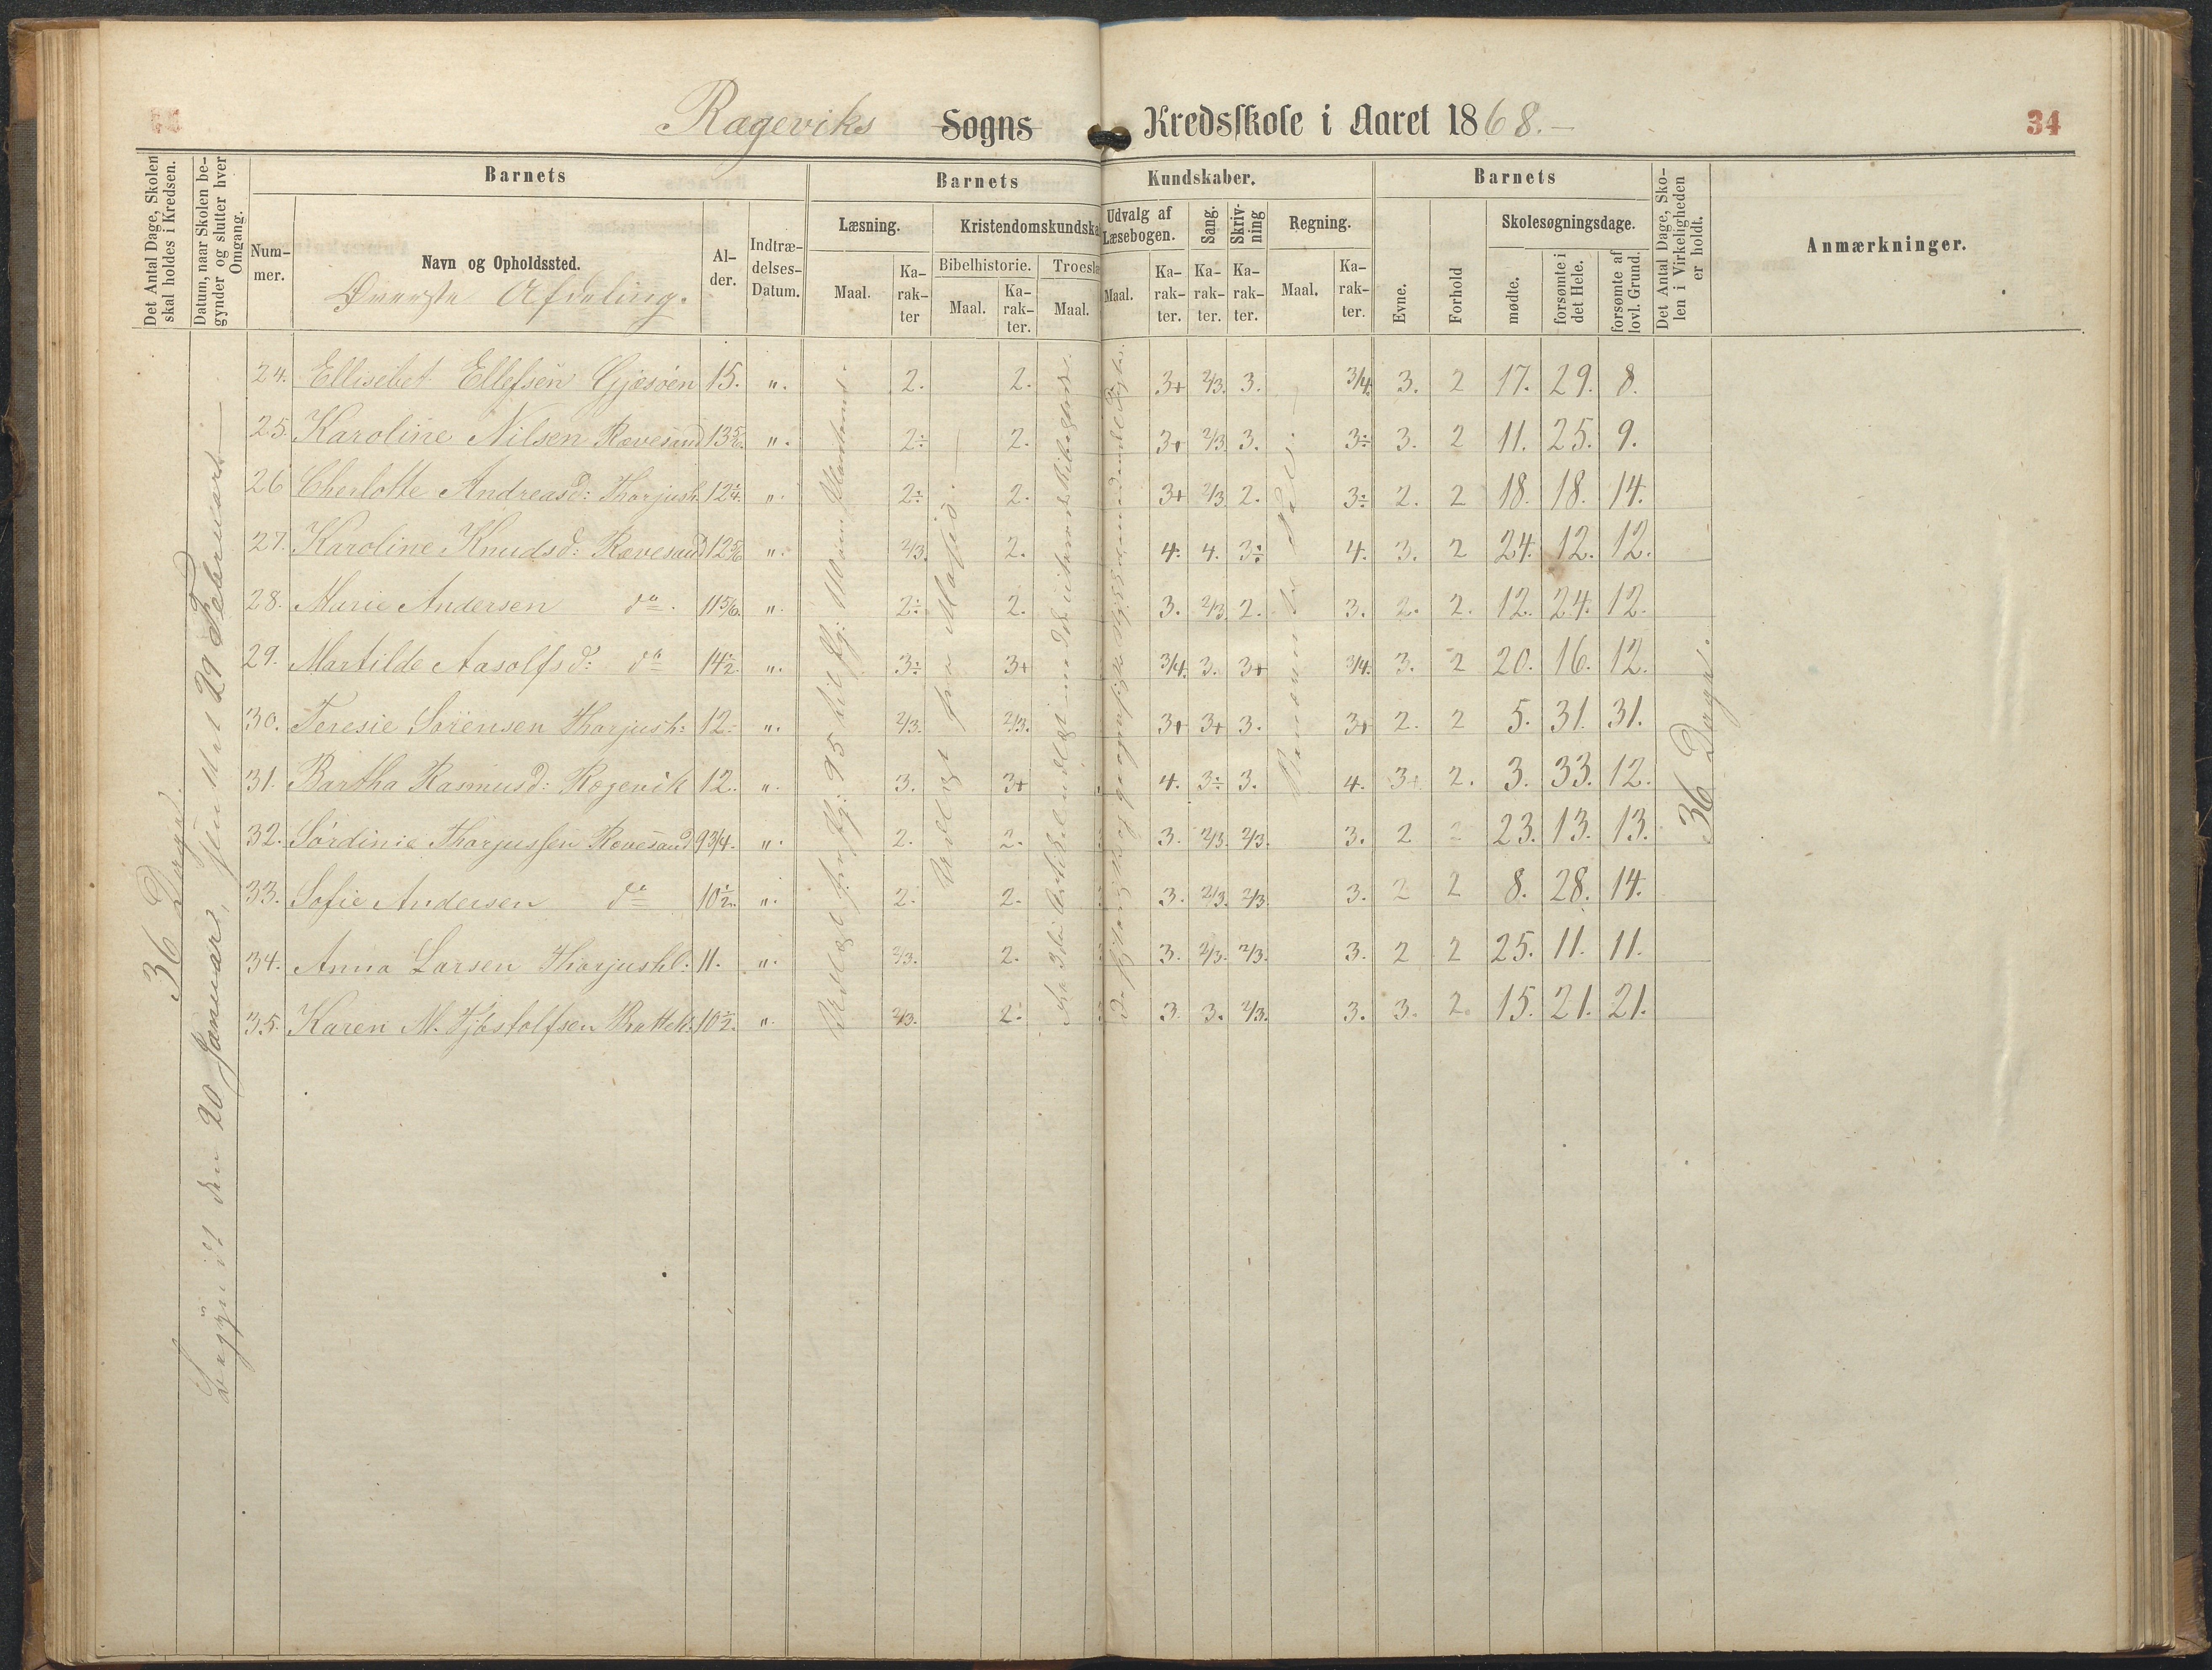 Rægeviks Sogns Kredsskole i Aaret 1868.
34
Det Antal Dage, Skolen skal holdes i Kredsen.
Datum, naar Skolen begynder og slutter hver Omgang.
Barnets
Barnets Kundskaber.
Barnets
Det Antal Dage, Skolen i Virkeligheden er holdt.
Anmærkninger.
Nummer.
Navn og Opholdssted.
Øverste Afdeling.
Alder.
Indtrædelses-Datum.
Læsning.
Kristendomskundska
Udvalg af Læsebogen.
Sang.
Skrivning
Regning.
Evne.
Forhold
Skolesøgningsdage.
Maal.
Karakter
Bibelhistorie.
Troeslæ
Maal.
Karakter.
Maal.
Maal.
Karakter.
Karakter.
Karakter.
Maal.
Karakter.
mødte.
forsømte i det Hele.
forsømte af lovl. Grund.
36 Dage.
Begyndt den 20 Januar, sluttet 29 Februar
36 Dage.
24. Ellisebet Ellefsen Gjæsøen 15. ". 2. 2. 3+ 2/3. 3. 3/4. 3. 2 17. 29. 8.
25. Karoline Nilsen Rævesand 13 5/6. ". 2÷ 2. 3+ 2/3. 3. 3÷ 3. 2 11. 25. 9.
26 Cherlotte Andreasd: Thorjush. 12 1/4. ". 2÷ 2. 3+ 2/3. 2. 3÷ 2. 2 18. 18. 14.
27. Karoline Knudsd: Rævesand 12 5/6 ". 2/3. 2. 4. 4. 3÷ 4. 3. 2 24. 12. 12.
28. Marie Andersen do. 11 5/6. ". 2÷ 2. 3. 2/3. 2. 3. 2. 2. 12. 24. 12.
29. Martilde Aasolfsd: do 14 1/2. ". 3÷ 3+ 3/4. 3. 3+ 3/4. 3. 2 20. 16. 12.
30. Teresie Sørensen Thorjush: 12. ". 2/3. 2/3. 3+ 3+ 3. 3+ 2. 2 5. 31. 31.
31. Bartha Rasmusd: Rægevik 12. ". 3. 3+ 4. 3÷ 3. 4. 3+ 2. 3. 33. 12.
32. Sørdinie Thorjussen Rævesand 9 3/4. ". 2. 2. 3. 2/3. 2/3. 3. 2 2 23. 13. 13.
33. Sofie Andersen do 10 1/2. ". 2. 2. 3. 2/3. 2/3. 3. 2 2 8. 28. 14.
34. Anna Larsen Thorjushl: 11. ". 2/3. 2. 3. 2/3. 2/3. 3. 2 2 25. 11. 11.
35. Karen M. Hjøstolfsen Bratteh. 10 1/2. ". 2/3. 2. 3. 3. 2/3. 3. 3. 2. 15. 21. 21.